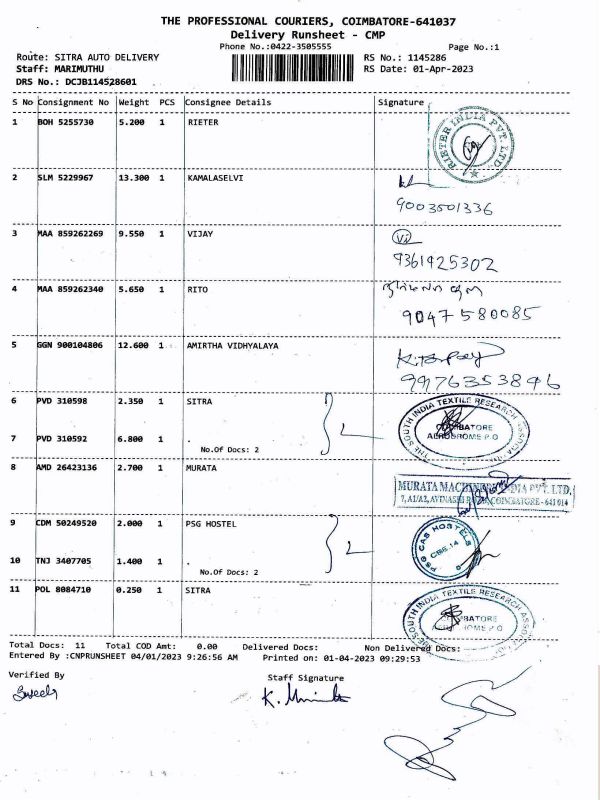 THE PROFESSIONAL COURIERS, COIMBATORE-641037
Delivery Runsheet - CMP
Phone No.:0422-3505555 Page No.:1
Route: SITRA AUTO DELIVERY RS No.: 1145286
Staff: MARIMUTHU RS Date: 01-Apr-2023
DRS No.: DCJB114528601
S No Consignment No Weight PCS Consignee Details Signature
1 BOH 5255730 5.200 1 RIETER
RIETER INDIA PVT. LTD.
2 SLM 5229967 13.300 1 KAMALASELVI
9003501336
3 MAA 859262269 9.550 1 VIJAY
Vi
9361925302
4 MAA 859262340 5.650 1 RITO
9047580085
5 GGN 900104806 12.600 1 AMIRTHA VIDHYALAYA
9976353896
6 PVD 310598 2.350 1 SITRA
THE SOUTH INDIA TEXTILE RESEARCH ASSOCIATION
COIMBATORE
AERODROME P.O
7 PVD 310592 6.800 1 .
No.Of Docs: 2
8 AMD 26423136 2.700 1 MURATA
MURATA MACHINERY INDIA PVT. LTD.
7, A1/A2, AVINASHI ROAD, COIMBATORE - 641 014
9 CDM 50249520 2.000 1 PSG HOSTEL
PSG CAS HOSTELS
CBE-14
10 TNJ 3407705 1.400 1 .
No.Of Docs: 2
11 POL 8084710 0.250 1 SITRA
THE SOUTH INDIA TEXTILE RESEARCH ASSOCIATION
COIMBATORE
AERODROME P.O
Total Docs: 11 Total COD Amt: 0.00 Delivered Docs: Non Delivered Docs:
Entered By :CNPRUNSHEET 04/01/2023 9:26:56 AM Printed on: 01-04-2023 09:29:53
Verified By Staff Signature